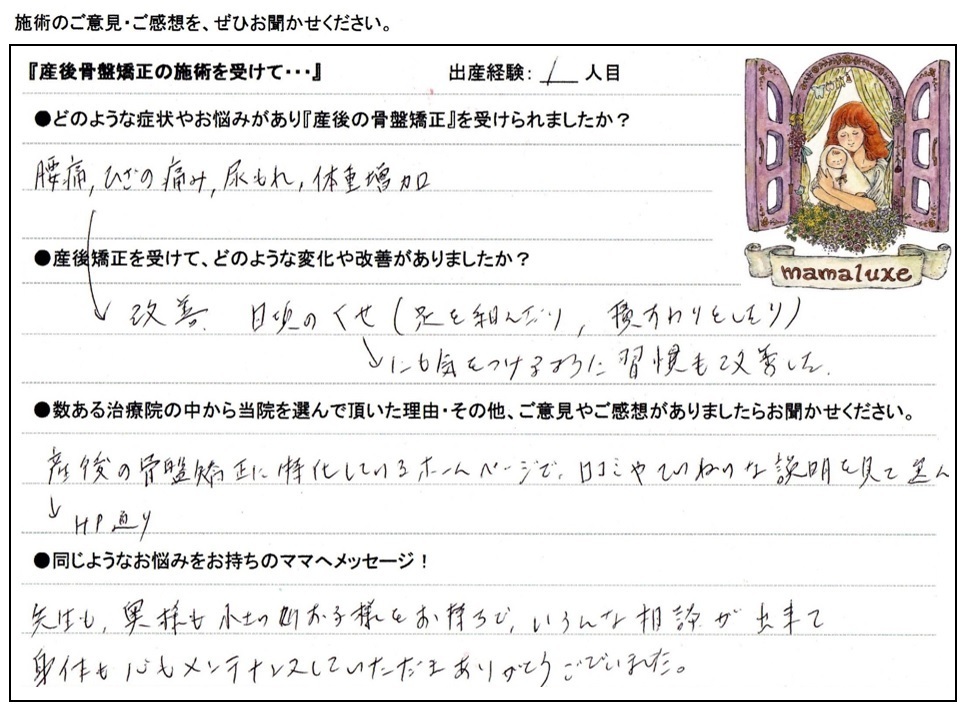 施術のご意見・ご感想を、ぜひお聞かせください。
『産後骨盤矯正の施術を受けて・・・』 出産経験: 1 人目
●どのような症状やお悩みがあり『産後の骨盤矯正』を受けられましたか？
腰痛, ひざの痛み, 尿もれ, 体重増加
●産後矯正を受けて、どのような変化や改善がありましたか？
mamaluxe
改善. 日頃のくせ (足を組んだり, 横すわりをしたり)
にも気をつけるように習慣も改善した.
●数ある治療院の中から当院を選んで頂いた理由・その他、ご意見やご感想がありましたらお聞かせください。
産後の骨盤矯正に特化しているホームページで, 口コミやていねいな説明を見て選ん
HP通り
●同じようなお悩みをお持ちのママへメッセージ！
先生も, 奥様も お子様をお持ちで, いろんな相談が出来て
身体も心もメンテナンスしていただきありがとうございました。